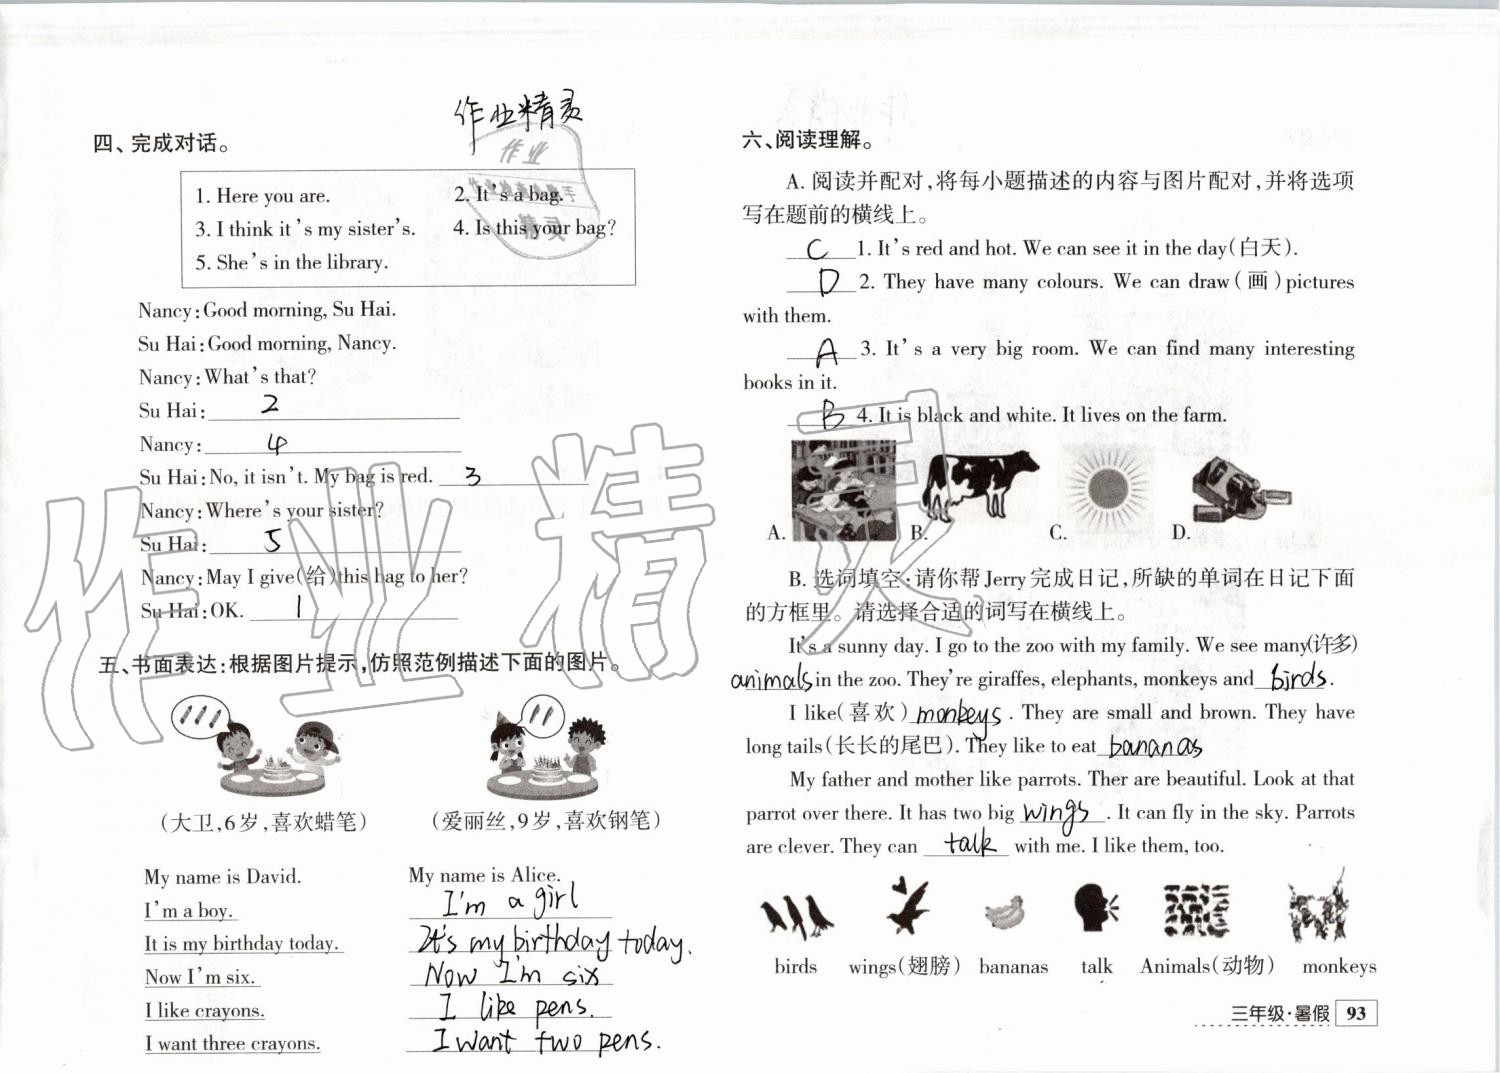 作业精灵
四、完成对话。
1. Here you are. 2. It's a bag.
3. I think it's my sister's. 4. Is this your bag?
5. She's in the library.
Nancy: Good morning, Su Hai.
Su Hai: Good morning, Nancy.
Nancy: What's that?
Su Hai: 2
Nancy: 4
Su Hai: No, it isn't. My bag is red. 3
Nancy: Where's your sister?
Su Hai: 5
Nancy: May I give(给)this bag to her?
Su Hai: OK. 1
五、书面表达:根据图片提示,仿照范例描述下面的图片。
(大卫,6岁,喜欢蜡笔) (爱丽丝,9岁,喜欢钢笔)
My name is David. My name is Alice.
I'm a boy. I'm a girl
It is my birthday today. It's my birthday today.
Now I'm six. Now I'm six
I like crayons. I like pens.
I want three crayons. I want two pens.
六、阅读理解。
A. 阅读并配对,将每小题描述的内容与图片配对,并将选项
写在题前的横线上。
C 1. It's red and hot. We can see it in the day(白天).
D 2. They have many colours. We can draw(画)pictures
with them.
A 3. It's a very big room. We can find many interesting
books in it.
B 4. It is black and white. It lives on the farm.
A. B. C. D.
B. 选词填空:请你帮Jerry完成日记,所缺的单词在日记下面
的方框里。请选择合适的词写在横线上。
It's a sunny day. I go to the zoo with my family. We see many(许多)
animals in the zoo. They're giraffes, elephants, monkeys and birds.
I like(喜欢) monkeys. They are small and brown. They have
long tails(长长的尾巴). They like to eat bananas
My father and mother like parrots. Ther are beautiful. Look at that
parrot over there. It has two big wings. It can fly in the sky. Parrots
are clever. They can talk with me. I like them, too.
birds wings(翅膀) bananas talk Animals(动物) monkeys
三年级·暑假 93
作业精灵